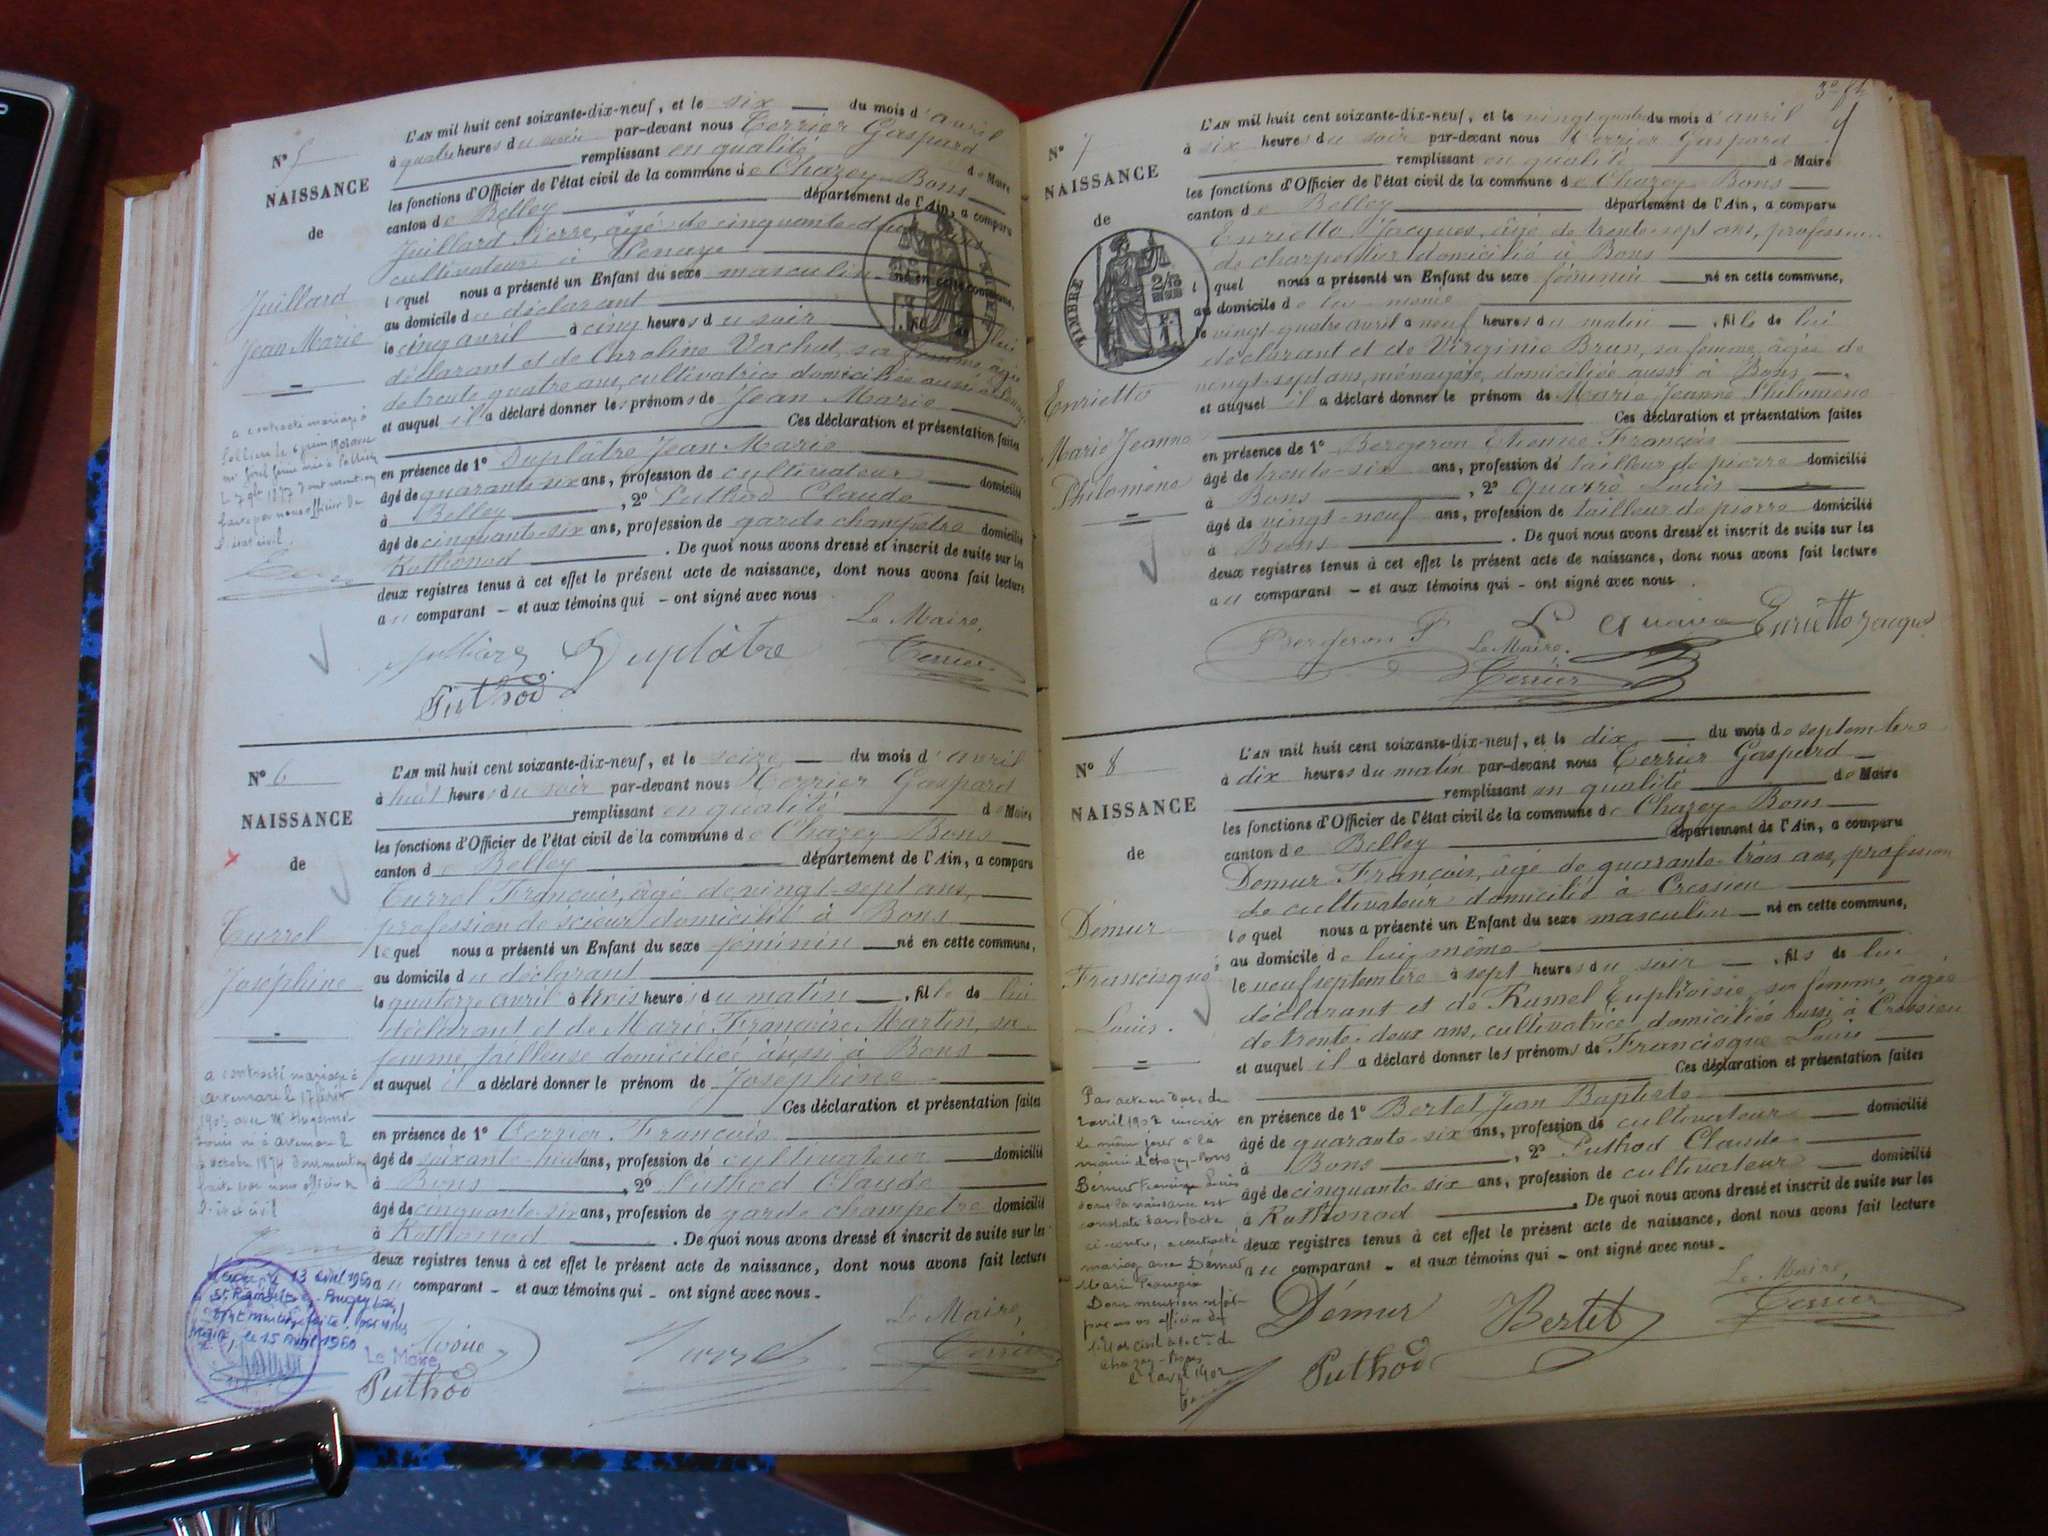 N° 5
NAISSANCE
de
Juillard
Jean Marie
L'AN mil huit cent soixante-dix-neuf, et le six du mois d'avril
à quatre heures du soir par-devant nous Terrier Gaspard
remplissant en qualité de Maire
les fonctions d'Officier de l'état civil de la commune de Chazey-Bons
canton de Belley département de l'Ain, a comparu
Juillard Pierre, âgé de cinquante-
cultivateur à
lequel nous a présenté un Enfant du sexe masculin né en cette commune,
au domicile du déclarant
le cinq avril à cinq heures du soir , fil lui
déclarant et de Caroline Vachet, sa femme, âgée
de trente quatre ans, cultivatrice domiciliée aussi à
et auquel il a déclaré donner les prénoms de Jean Marie
Ces déclaration et présentation faites
en présence de 1° Duplâtre Jean Marie
âgé de quarante six ans, profession de cultivateur domicilié
à Belley , 2° Puthod Claude
âgé de cinquante-six ans, profession de garde champêtre domicilié
Rothonod . De quoi nous avons dressé et inscrit de suite sur les
deux registres tenus à cet effet le présent acte de naissance, dont nous avons fait lecture
au comparant - et aux témoins qui - ont signé avec nous
Le Maire,
Duplâtre
Terrier
Puthod
a contracté mariage à
Pollieu le 6 juin 1903 avec
dont mention
faite par nous officier de
l'état civil.
N° 6
NAISSANCE
de
Turrel
Joséphine
L'AN mil huit cent soixante-dix-neuf, et le seize du mois d'avril
à huit heures du soir par-devant nous Terrier Gaspard
remplissant en qualité de Maire
les fonctions d'Officier de l'état civil de la commune de Chazey-Bons
canton de Belley département de l'Ain, a comparu
Turrel François, âgé de vingt-sept ans,
profession de scieur domicilié à Bons
lequel nous a présenté un Enfant du sexe féminin né en cette commune,
au domicile du déclarant
le quatorze avril à trois heures du matin , fille de lui
déclarant et de Marie Françoise Martin, sa
femme, tailleuse domiciliée aussi à Bons
et auquel il a déclaré donner le prénom de Joséphine
Ces déclaration et présentation faites
en présence de 1° Terrier François
âgé de soixante-huit ans, profession de cultivateur domicilié
à Bons , 2° Puthod Claude
âgé de cinquante-six ans, profession de garde champêtre domicilié
à Rothonod . De quoi nous avons dressé et inscrit de suite sur les
deux registres tenus à cet effet le présent acte de naissance, dont nous avons fait lecture
au comparant - et aux témoins qui - ont signé avec nous -
Le Maire,
Turrel
Terrier
Puthod
a contracté mariage à
Artemare le 17
1903 avec
né à Artemare le
octobre 1874 dont mention
faite par nous officier de
l'état civil
le 13 avril 1960
St Rambert en Bugey
mention faite par nous
Maire, le 15 avril 1960
Le Maire,
3e ft
N° 7
NAISSANCE
de
TIMBRE
Enrietto
Marie Jeanne
Philomène
L'AN mil huit cent soixante-dix-neuf, et le vingt quatre du mois d'avril
à six heures du soir par-devant nous Terrier Gaspard
remplissant en qualité de Maire
les fonctions d'Officier de l'état civil de la commune de Chazey-Bons
canton de Belley département de l'Ain, a comparu
Enrietto Jacques, âgé de trente-sept ans, profession
de charpentier domicilié à Bons
lequel nous a présenté un Enfant du sexe féminin né en cette commune,
au domicile de lui-même
le vingt-quatre avril à neuf heures du matin , fille de lui
déclarant et de Virginie Brun, sa femme, âgée de
vingt-sept ans, ménagère, domiciliée aussi à Bons
et auquel il a déclaré donner le prénom de Marie Jeanne Philomène
Ces déclaration et présentation faites
en présence de 1° Bergeron Etienne François
âgé de trente-six ans, profession de tailleur de pierre domicilié
à Bons , 2° Quarre Louis
âgé de vingt-neuf ans, profession de tailleur de pierre domicilié
à Bons . De quoi nous avons dressé et inscrit de suite sur les
deux registres tenus à cet effet le présent acte de naissance, dont nous avons fait lecture
au comparant - et aux témoins qui - ont signé avec nous .
Bergeron F Enrietto Jacques
Le Maire,
Terrier
N° 8
NAISSANCE
de
Démur
Francisque
Louis.
L'AN mil huit cent soixante-dix-neuf, et le dix du mois de septembre
à dix heures du matin par-devant nous Terrier Gaspard
remplissant en qualité de Maire
les fonctions d'Officier de l'état civil de la commune de Chazey-Bons
canton de Belley département de l'Ain, a comparu
Démur François, âgé de quarante-trois ans, profession
de cultivateur domicilié à Cressieu
lequel nous a présenté un Enfant du sexe masculin né en cette commune,
au domicile de lui même
le neuf septembre à sept heures du soir , fils de lui
déclarant et de Rumel Euphroisie sa femme, âgée
de trente-deux ans, cultivatrice domiciliée aussi à Cressieu
et auquel il a déclaré donner les prénoms de Francisque Louis
Ces déclaration et présentation faites
en présence de 1° Bertet Jean Baptiste
âgé de quarante-six ans, profession de cultivateur domicilié
à Bons , 2° Puthod Claude
âgé de cinquante-six ans, profession de cultivateur domicilié
à Rothonod . De quoi nous avons dressé et inscrit de suite sur les
deux registres tenus à cet effet le présent acte de naissance, dont nous avons fait lecture
au comparant - et aux témoins qui - ont signé avec nous -
Le Maire,
Démur Bertet Terrier
Puthod
Par acte en date du
2 avril 1902 inscrit
le même jour à la
mairie d' Chazey-Bons
Démur Francisque Louis
dont la naissance est
constatée dans l'acte
ci-contre, a contracté
mariage avec Démur
Marie Françoise
Dont mention
par nous officier de
l'état civil de la Cne de
Chazey-Bons
le 2 avril 1902